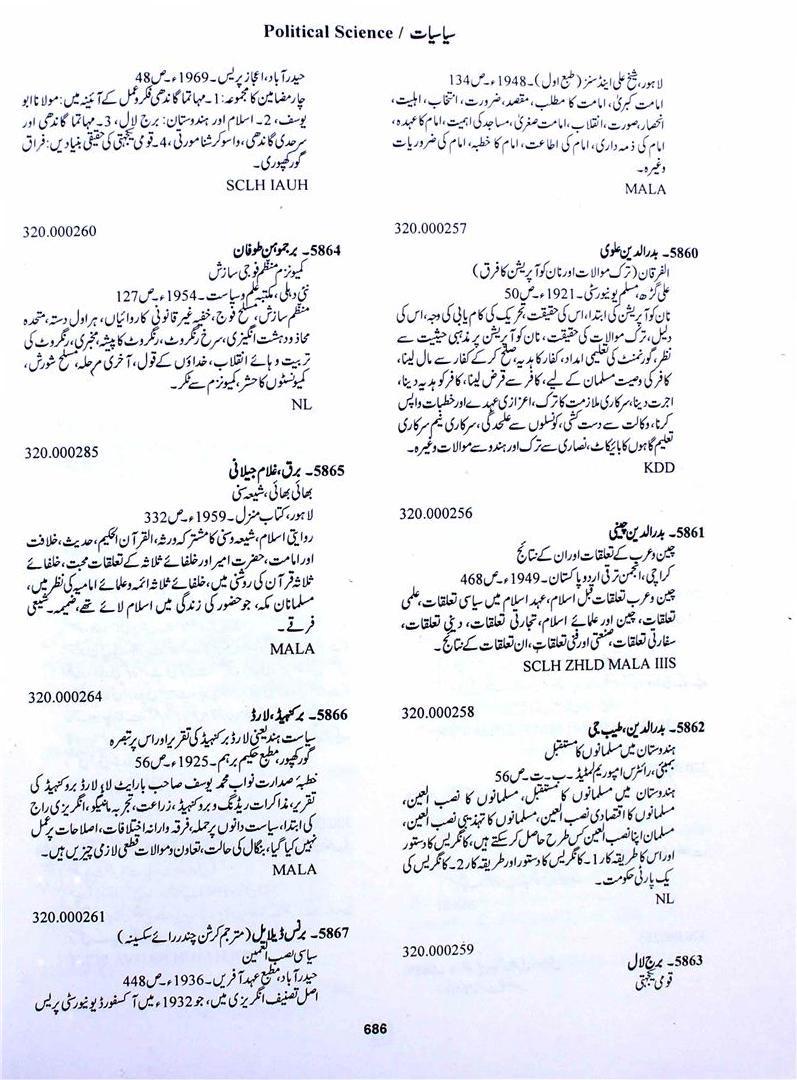 Political Science / سیاسیات
لاہور، شیخ علی اینڈ سنز (طبع اول)۔ 1948ء۔ ص 134
امامت کبریٰ، امامت کا مطلب، مقصد، ضرورت، انتخاب، اہلیت،
انحصار، صورت، انقلاب، امامت صغریٰ، مساجد کی اہمیت، امام کا عہدہ،
امام کی ذمہ داری، امام کی اطاعت، امام کا خطبہ، امام کی ضروریات
وغیرہ۔
MALA
320.000257
5860۔ بدرالدین علوی
الفرقان (ترک موالات اور نان کو آپریشن کا فرق)
علی گڑھ، مسلم یونیورسٹی۔ 1921ء۔ ص 50
نان کو آپریشن کی ابتدا، اس کی حقیقت، تحریک کی کام یابی کی وجہ، اس کی
دلیل، ترک موالات کی حقیقت، نان کو آپریشن پر مذہبی حیثیت سے
نظر، گورنمنٹ کی تعلیمی امداد، کفار کا ہدیہ، صلح کر کے کفار سے مال لینا،
کافر کی وصیت مسلمان کے لیے، کافر سے قرض لینا، کافر کو ہدیہ دینا،
اجرت دینا، سرکاری ملازمت کا ترک، اعزازی عہدے اور خطبات واپس
کرنا، وکالت سے دست کشی، کونسلوں سے علحدگی، سرکاری نیم سرکاری
تعلیم گاہوں کا بائیکاٹ، نصاریٰ سے ترک اور ہندو سے موالات وغیرہ۔
KDD
320.000256
5861۔ بدرالدین چینی
چین و عرب کے تعلقات اور ان کے نتائج
کراچی، انجمن ترقی اردو پاکستان۔ 1949ء۔ ص 468
چین و عرب تعلقات قبل اسلام، عہد اسلام میں سیاسی تعلقات، علمی
تعلقات، چین اور علمائے اسلام، تجارتی تعلقات، دینی تعلقات،
سفارتی تعلقات، صنعتی اور فنی تعلقات، ان تعلقات کے نتائج۔
SCLH ZHLD MALA IIIS
320.000258
5862۔ بدرالدین، طیب جی
ہندوستان میں مسلمانوں کا مستقبل
بمبئی، رائٹرس امپوریم لمیٹڈ۔ ب۔ت۔ ص 56
ہندوستان میں مسلمانوں کا مستقبل، مسلمانوں کا نصب العین،
مسلمانوں کا اقتصادی نصب العین، مسلمانوں کا تہذیبی نصب العین،
مسلمان اپنا نصب العین کس طرح حاصل کر سکتے ہیں، کانگریس کا دستور
اور اس کا طریقہ کار 1۔ کانگریس کا دستور اور طریقہ کار 2۔ کانگریس کی
یک پارٹی حکومت۔
NL
320.000259
5863۔ برج لال
قومی یکجہتی
حیدرآباد، اعجاز پریس۔ 1969ء۔ ص 48
چار مضامین کا مجموعہ: 1۔ مہاتما گاندھی فکر و عمل کے آئینہ میں: مولانا ابو
یوسف، 2۔ اسلام اور ہندوستان: برج لال، 3۔ مہاتما گاندھی اور
سرحدی گاندھی، واسو کرشنا مورتی، 4۔ قومی یکجہتی کی حقیقی بنیادیں: فراق
گورکھپوری۔
SCLH IAUH
320.000260
5864۔ برجموہن طوفان
کمیونزم منظم فوجی سازش
نئی دہلی، مکتبہ علم و سیاست۔ 1954ء۔ ص 127
منظم سازش، مسلح فوج، خفیہ غیر قانونی کاروائیاں، ہراول دستہ، متحدہ
محاذ و دہشت انگیزی، سرخ رنگروٹ، رنگروٹ کا پیشہ، مخبری، رنگروٹ کی
تربیت و ہائے انقلاب، خداؤں کے قول، آخری مرحلہ، مسلح شورش،
کمیونسٹوں کا حشر، کمیونزم سے ٹکر۔
NL
320.000285
5865۔ برق، غلام جیلانی
بھائی بھائی، شیعہ سنی
لاہور، کتاب منزل۔ 1959ء۔ ص 332
روایتی اسلام، شیعہ و سنی کا مشترکہ ورثہ، القرآن الحکیم، حدیث، خلافت
اور امامت، حضرت امیر اور خلفائے ثلاثہ کے تعلقات محبت، خلفائے
ثلاثہ قرآن کی روشنی میں، خلفائے ثلاثہ ائمہ و علمائے امامیہ کی نظر میں،
مسلمانان مکہ، جو حضور کی زندگی میں اسلام لائے تھے، ضمیمہ۔ شیعی
فرقے۔
MALA
320.000264
5866۔ برکنہیڈ، لارڈ
سیاست ہند یعنی لارڈ برکنہیڈ کی تقریر اور اس پر تبصرہ
گورکھپور، مطبع حکیم برہم۔ 1925ء۔ ص 56
خطبۂ صدارت نواب محمد یوسف صاحب بار ایٹ لا، لارڈ بروکنہیڈ کی
تقریر، مذاکرات ریڈنگ و بروکنہیڈ، زراعت، تجربہ مانٹیگو، انگریزی راج
کی ابتدا، سیاست دانوں پر حملہ، فرقہ وارانہ اختلافات، اصلاحات پر عمل
نہیں کیا گیا، بنگال کی حالت، تعاون و موالات قطعی لازمی چیزیں ہیں۔
MALA
320.000261
5867۔ برنس ڈیلایل (مترجم کرشن چندر رائے سکسینہ)
سیاسی نصب العین
حیدرآباد، مطبع عہد آفریں۔ 1936ء۔ ص 448
اصل تصنیف انگریزی میں، جو 1932ء میں آکسفورڈ یونیورسٹی پریس
686